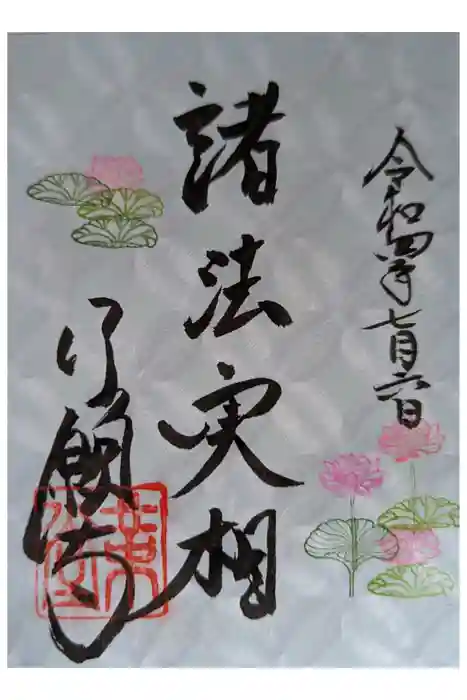 令和四年七月六日
諸法実相
行願寺